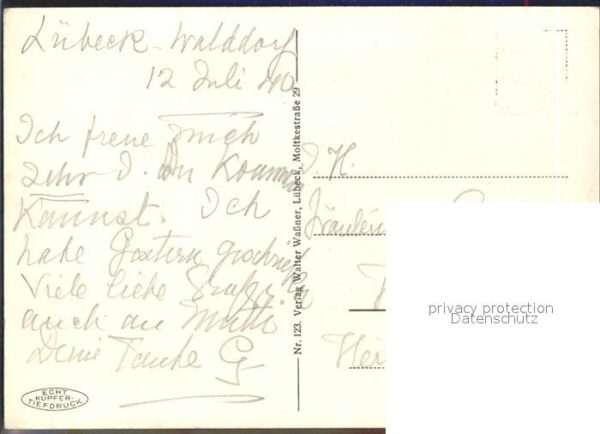 Lübeck-Walddorf
12 Juli 40
Ich freue mich
sehr d. Du kommen
kannst. Ich
habe Gestern geschrieben
Viele liebe Grüße
auch an Mutti
Deine Tante G
ECHT
KUPFER-
TIEFDRUCK
Nr. 123. Verlag Walter Waßner, Lübeck, Moltkestraße 29
Fräulein
privacy protection
Datenschutz